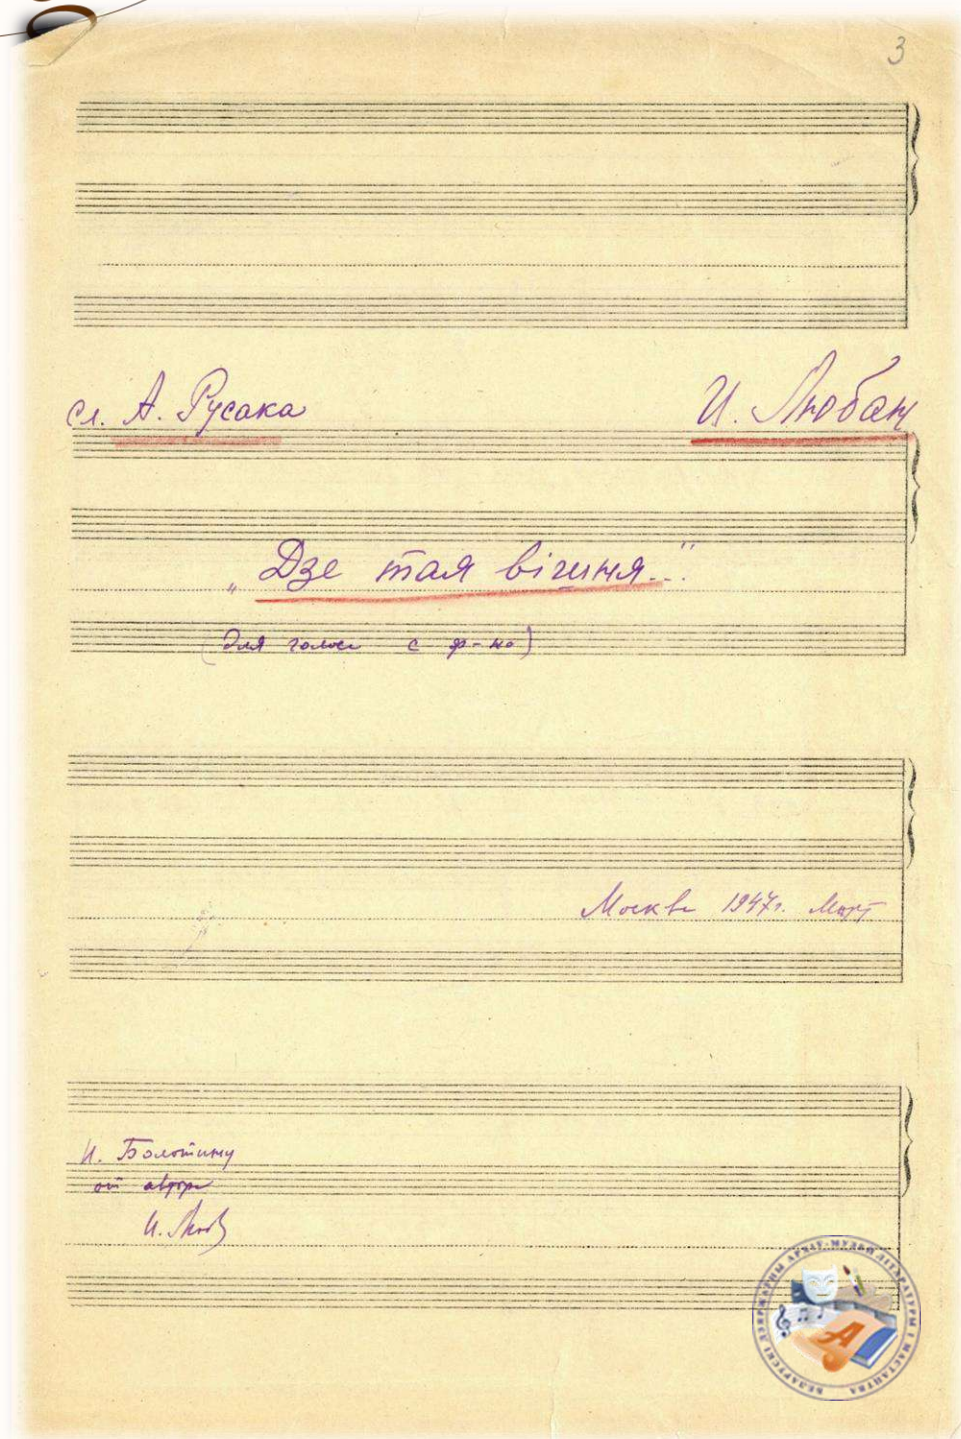 3
сл. А. Русака
И. Любан
„Дзе тая вішня..."
(для голоса с ф-но)
Москва 1947г. Март
И. Болотину
от автора
И. Люб
БЕЛАРУСКІ ДЗЯРЖАЎНЫ АРХІЎ-МУЗЕЙ ЛІТАРАТУРЫ І МАСТАЦТВА